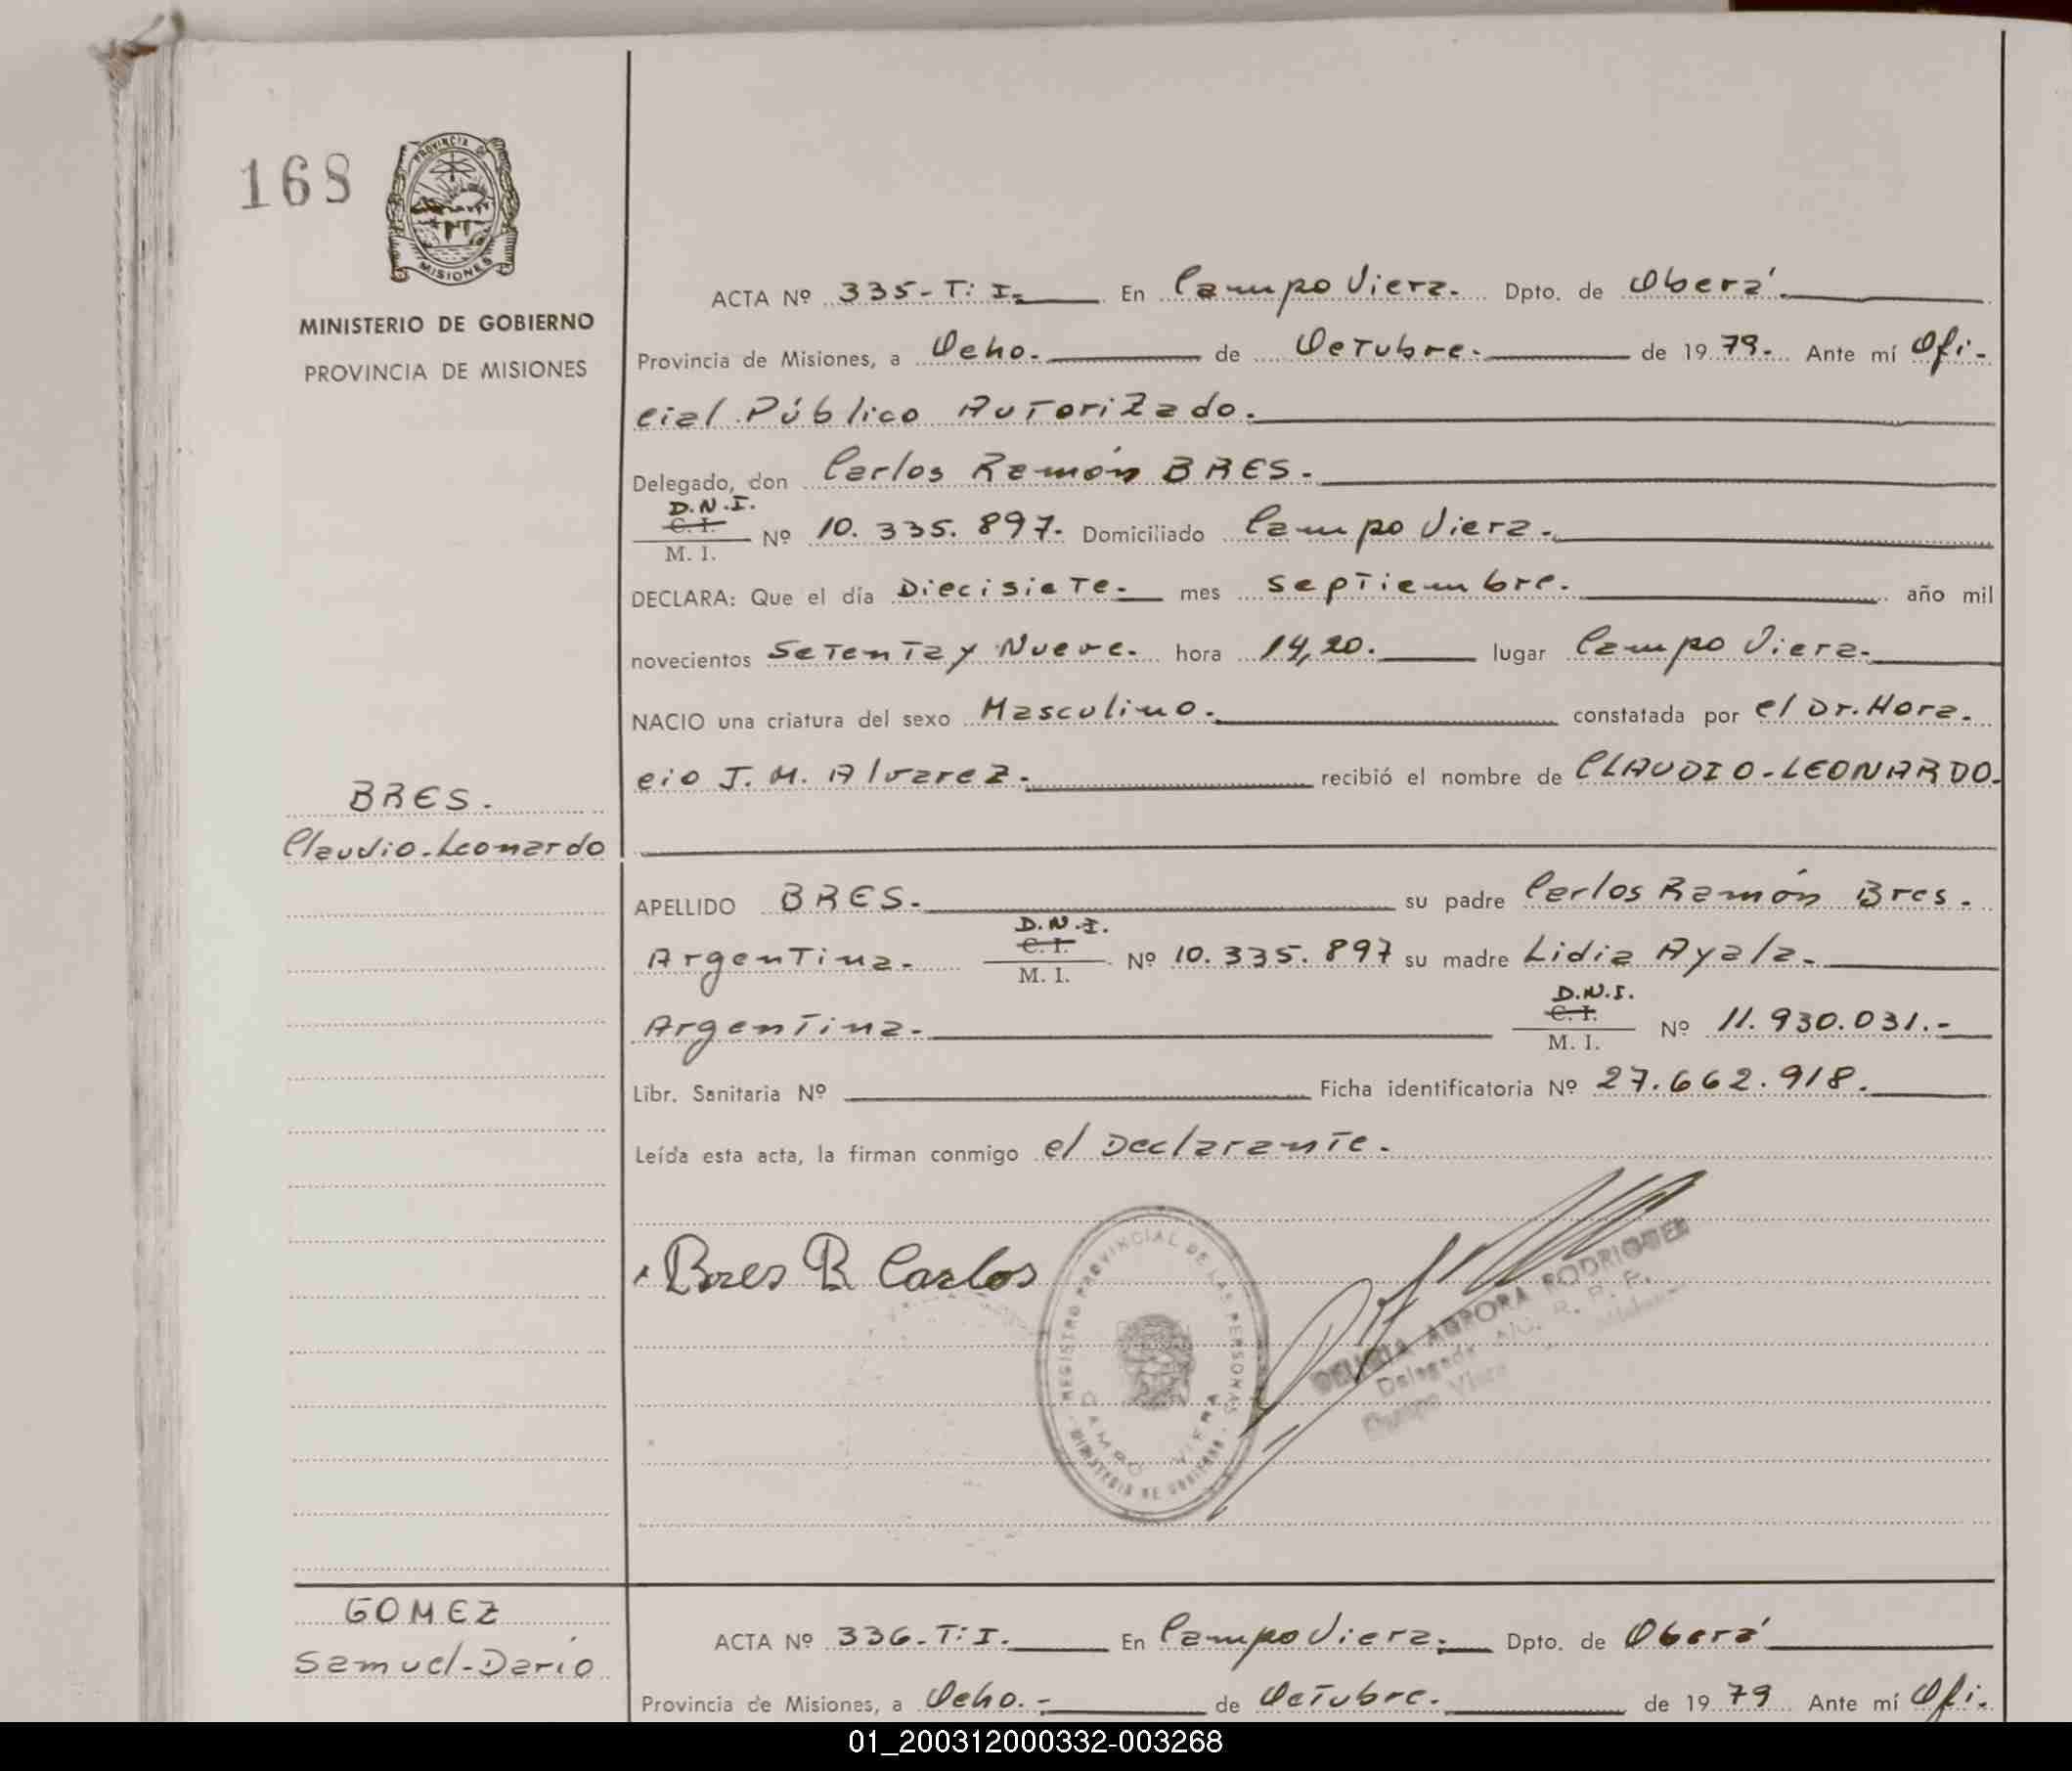 168
PROVINCIA DE
MISIONES
MINISTERIO DE GOBIERNO
PROVINCIA DE MISIONES
ACTA Nº 335-T: I. En Campo Viera. Dpto. de Oberá.
Provincia de Misiones, a Ocho. de Octubre. de 19 79. Ante mí Ofi-
cial Público Autorizado.
Delegado, don Carlos Ramón BRES.
D.N.I.
C. I.
M. I.
Nº 10. 335. 897. Domiciliado Campo Viera.
DECLARA: Que el día Diecisiete. mes septiembre. año mil
novecientos Setenta y Nueve. hora 14,20. lugar Campo Viera.
NACIO una criatura del sexo Masculino. constatada por el Dr. Hora-
cio J. M. Alvarez. recibió el nombre de CLAUDIO-LEONARDO.
BRES.
Claudio-Leonardo
APELLIDO BRES. su padre Carlos Ramón Bres.
Argentina. D.N.I.
C. I.
M. I.
Nº 10. 335. 897 su madre Lidia Ayala.
Argentina. D.N.I.
C. I.
M. I.
Nº 11. 930. 031.-
Libr. Sanitaria Nº Ficha identificatoria Nº 27.662.918.
Leída esta acta, la firman conmigo el Declarante.
Bres R Carlos
REGISTRO PROVINCIAL DE LAS PERSONAS
CAMPO VIERA
MINISTERIO DE GOBIERNO
AURORA RODRIGUEZ
Delegada A/C. R. P. P.
Campo Viera
GOMEZ
Samuel-Darío
ACTA Nº 336-T: I. En Campo Viera. Dpto. de Oberá
Provincia de Misiones, a Ocho.- de Octubre. de 19 79 Ante mí Ofi-
01_200312000332-003268